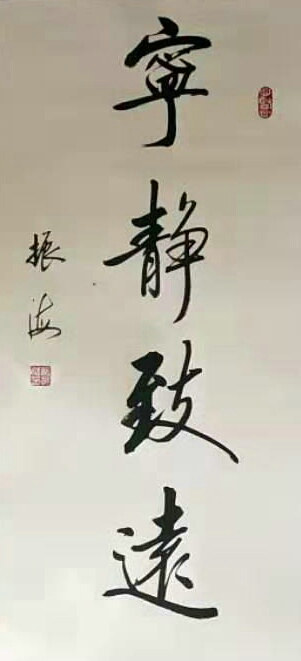 寧靜致遠
振海